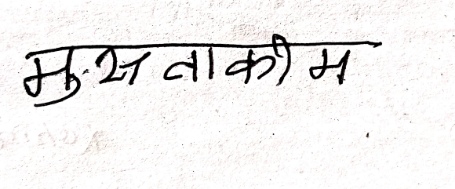 मुसताकीम